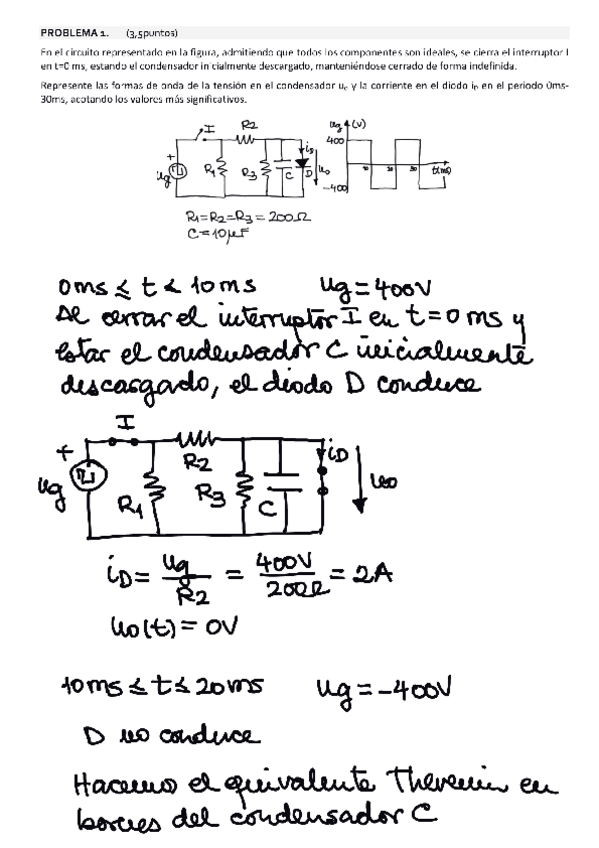 PROBLEMA 1. (3,5puntos)
En el circuito representado en la figura, admitiendo que todos los componentes son ideales, se cierra el interruptor I
en t=0 ms, estando el condensador inicialmente descargado, manteniéndose cerrado de forma indefinida.
Represente las formas de onda de la tensión en el condensador uo y la corriente en el diodo iD en el periodo 0ms-
30ms, acotando los valores más significativos.
I R2 iD ug(V)
400
+ ug R1 R3 C D uo 10 20 30 t(ms)
-400
R1=R2=R3=200Ω
C=10µF
0ms ≤ t < 10ms ug=400V
Al cerrar el interruptor I en t=0 ms y
estar el condensador C inicialmente
descargado, el diodo D conduce
I
+ R2 iD
ug R1 R3 C uo
iD = ug/R2 = 400V/200Ω = 2A
uo(t) = 0V
10ms ≤ t ≤ 20ms ug=-400V
D no conduce
Hacemos el equivalente Thevenin en
bornes del condensador C